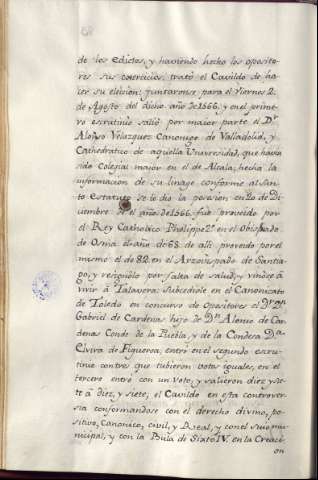 de los Edictos, y haviendo hecho los oposito
res sus exercicios, trató el Cavildo de ha
cer su eleccion: juntaronse para el Viernes 2.
de Agosto del dicho año de 1566. y en el prime
ro escrutinio salió por maior parte el Dr
Alonso Velazquez Canonigo de Valladolid, y
Cathedratico de aquella Universidad, que havia
sido Colegial maior en el de Alcala; hecha la
informacion de su linage conforme al San
to Estatuto se le dio la posesion en 20 de Di
ciembre de el año de 1566. fue proveido por
el Rey Catholico Phelippe 2º en el Obispado
de Osma el año de 68. de alli proveido por el
mismo el de 82. en el Arzobispado de Santia
go, y resignólo por falta de salud, y vinose á
vivir á Talavera: Subcedióle en el Canonicato
de Toledo en concurso de Opositores el Dr. Dn.
Gabriel de Cardenas hijo de Dn Alonso de Car
denas Conde de la Puebla, y de la Condesa Da.
Elvira de Figueroa, entró en el segundo escru
tinio con tres que tubieron votos iguales, en el
tercero entró con un voto, y salieron diez y sie
te á diez, y siete; el Cavildo en esta controver
sia conformandose con el derecho divino, po
sitivo, Canonico, civil, y Real, y con el suio mu
nicipal, y con la Bula de Sixto IV. en la Creaci
on